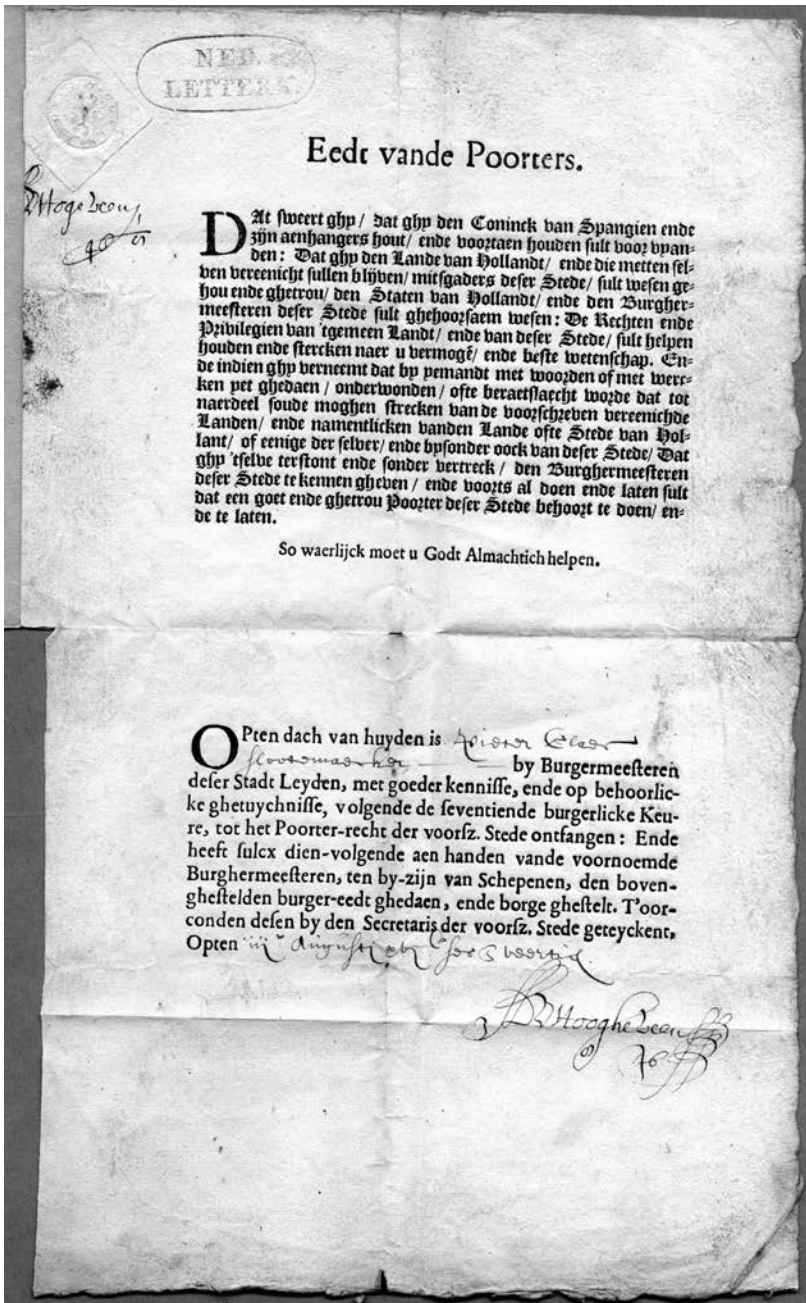 NED.
LETTERK.
Eedt vande Poorters.
DAt sweert ghy/ dat ghy den Coninck van Spangien ende
zijn aenhangers hout/ ende voortaen houden sult voor vyan-
den: Dat ghy den Lande van Hollandt/ ende die metten sel-
ven vereenicht sullen blijven/ mitsgaders deser Stede/ sult wesen ge-
hou ende ghetrou/ den Staten van Hollandt/ ende den Burgher-
meesteren deser Stede sult ghehoorsaem wesen: De Rechten ende
Privilegien van 'tgemeen Landt/ ende van deser Stede/ sult helpen
houden ende stercken naer u vermogē/ ende beste wetenschap. En-
de indien ghy verneemt dat by yemandt met woorden of met werc-
ken yet ghedaen/ onderwonden/ ofte beraetslaecht worde dat tot
naerdeel soude moghen strecken van de voorschreven vereenichde
Landen/ ende namentlicken vanden Lande ofte Stede van Hol-
lant/ of eenige der selver/ ende bysonder oock van deser Stede/ Dat
ghy 'tselve terstont ende sonder vertreck/ den Burghermeesteren
deser Stede te kennen gheven/ ende voorts al doen ende laten sult
dat een goet ende ghetrou Poorter deser Stede behoort te doen/ en-
de te laten.
So waerlijck moet u Godt Almachtich helpen.
OPten dach van huyden is Pieter Claes
slootemaecker by Burgermeesteren
deser Stadt Leyden, met goeder kennisse, ende op behoorlic-
ke ghetuychnisse, volgende de seventiende burgerlicke Keu-
re, tot het Poorter-recht der voorsz. Stede ontfangen: Ende
heeft sulcx dien-volgende aen handen vande voornoemde
Burghermeesteren, ten by-zijn van Schepenen, den boven-
ghestelden burger-eedt ghedaen, ende borge ghestelt. T'oor-
conden desen by den Secretaris der voorsz. Stede geteyckent,
Opten iij Augusti veertich